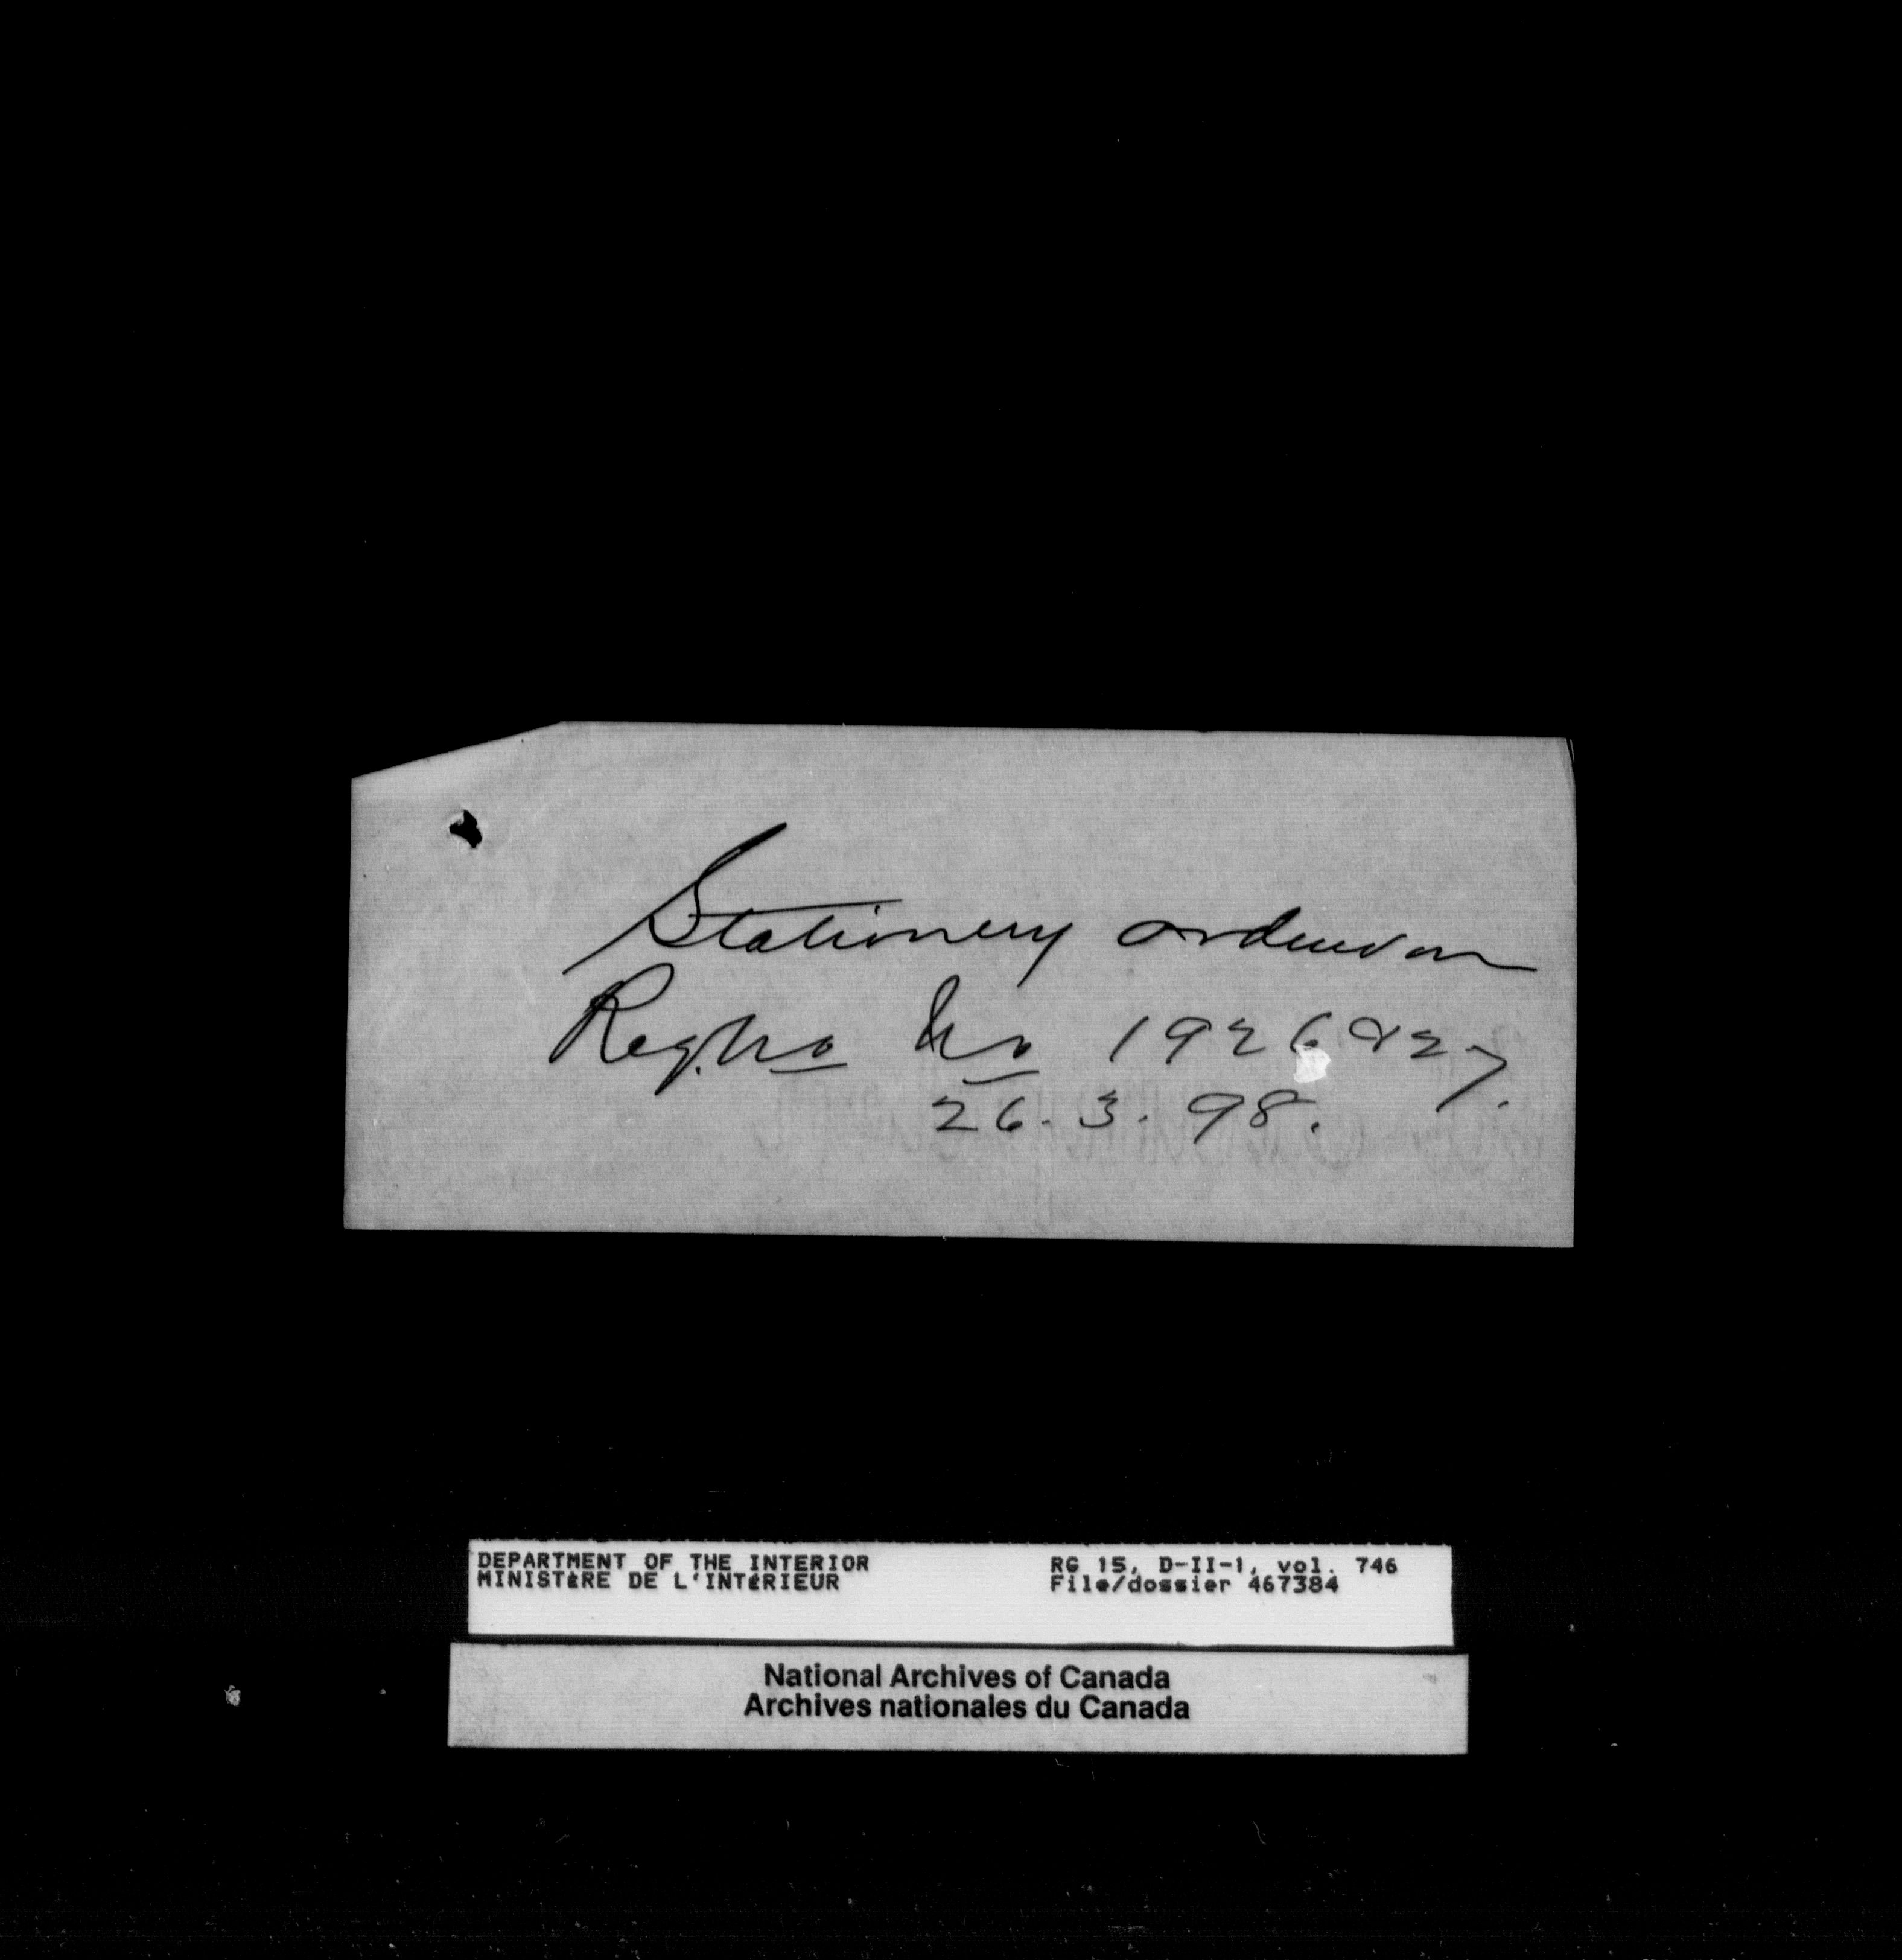 Stationery ordered on
Reqno No 1926 & 27.
26. 3. 98.
DEPARTMENT OF THE INTERIOR RG 15, D-II-1, vol. 746
MINISTèRE DE L'INTéRIEUR File/dossier 467384
National Archives of Canada
Archives nationales du Canada